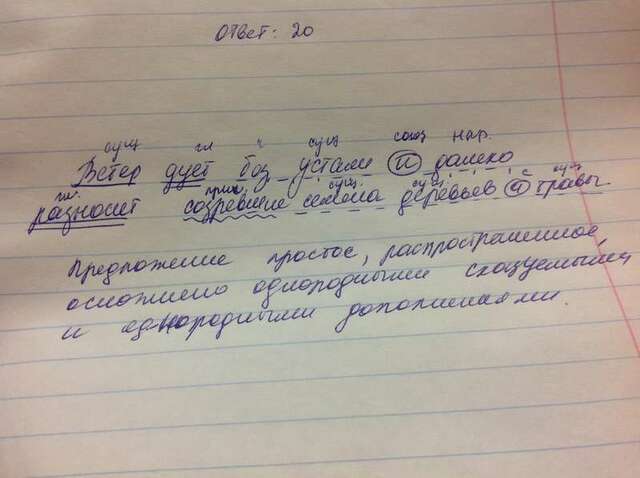 Ответ: 20
сущ гл ч сущ союз нар.
Ветер дует без устали и далеко
гл. прил. сущ. сущ. с сущ.
разносит созревшие семена деревьев и травы
Предложение простое, распространенное
осложнено однородными сказуемыми
и однородными дополнениями.